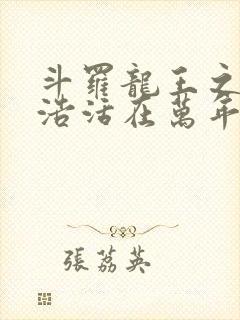 斗羅龍王之
浩活在萬年
張荔英